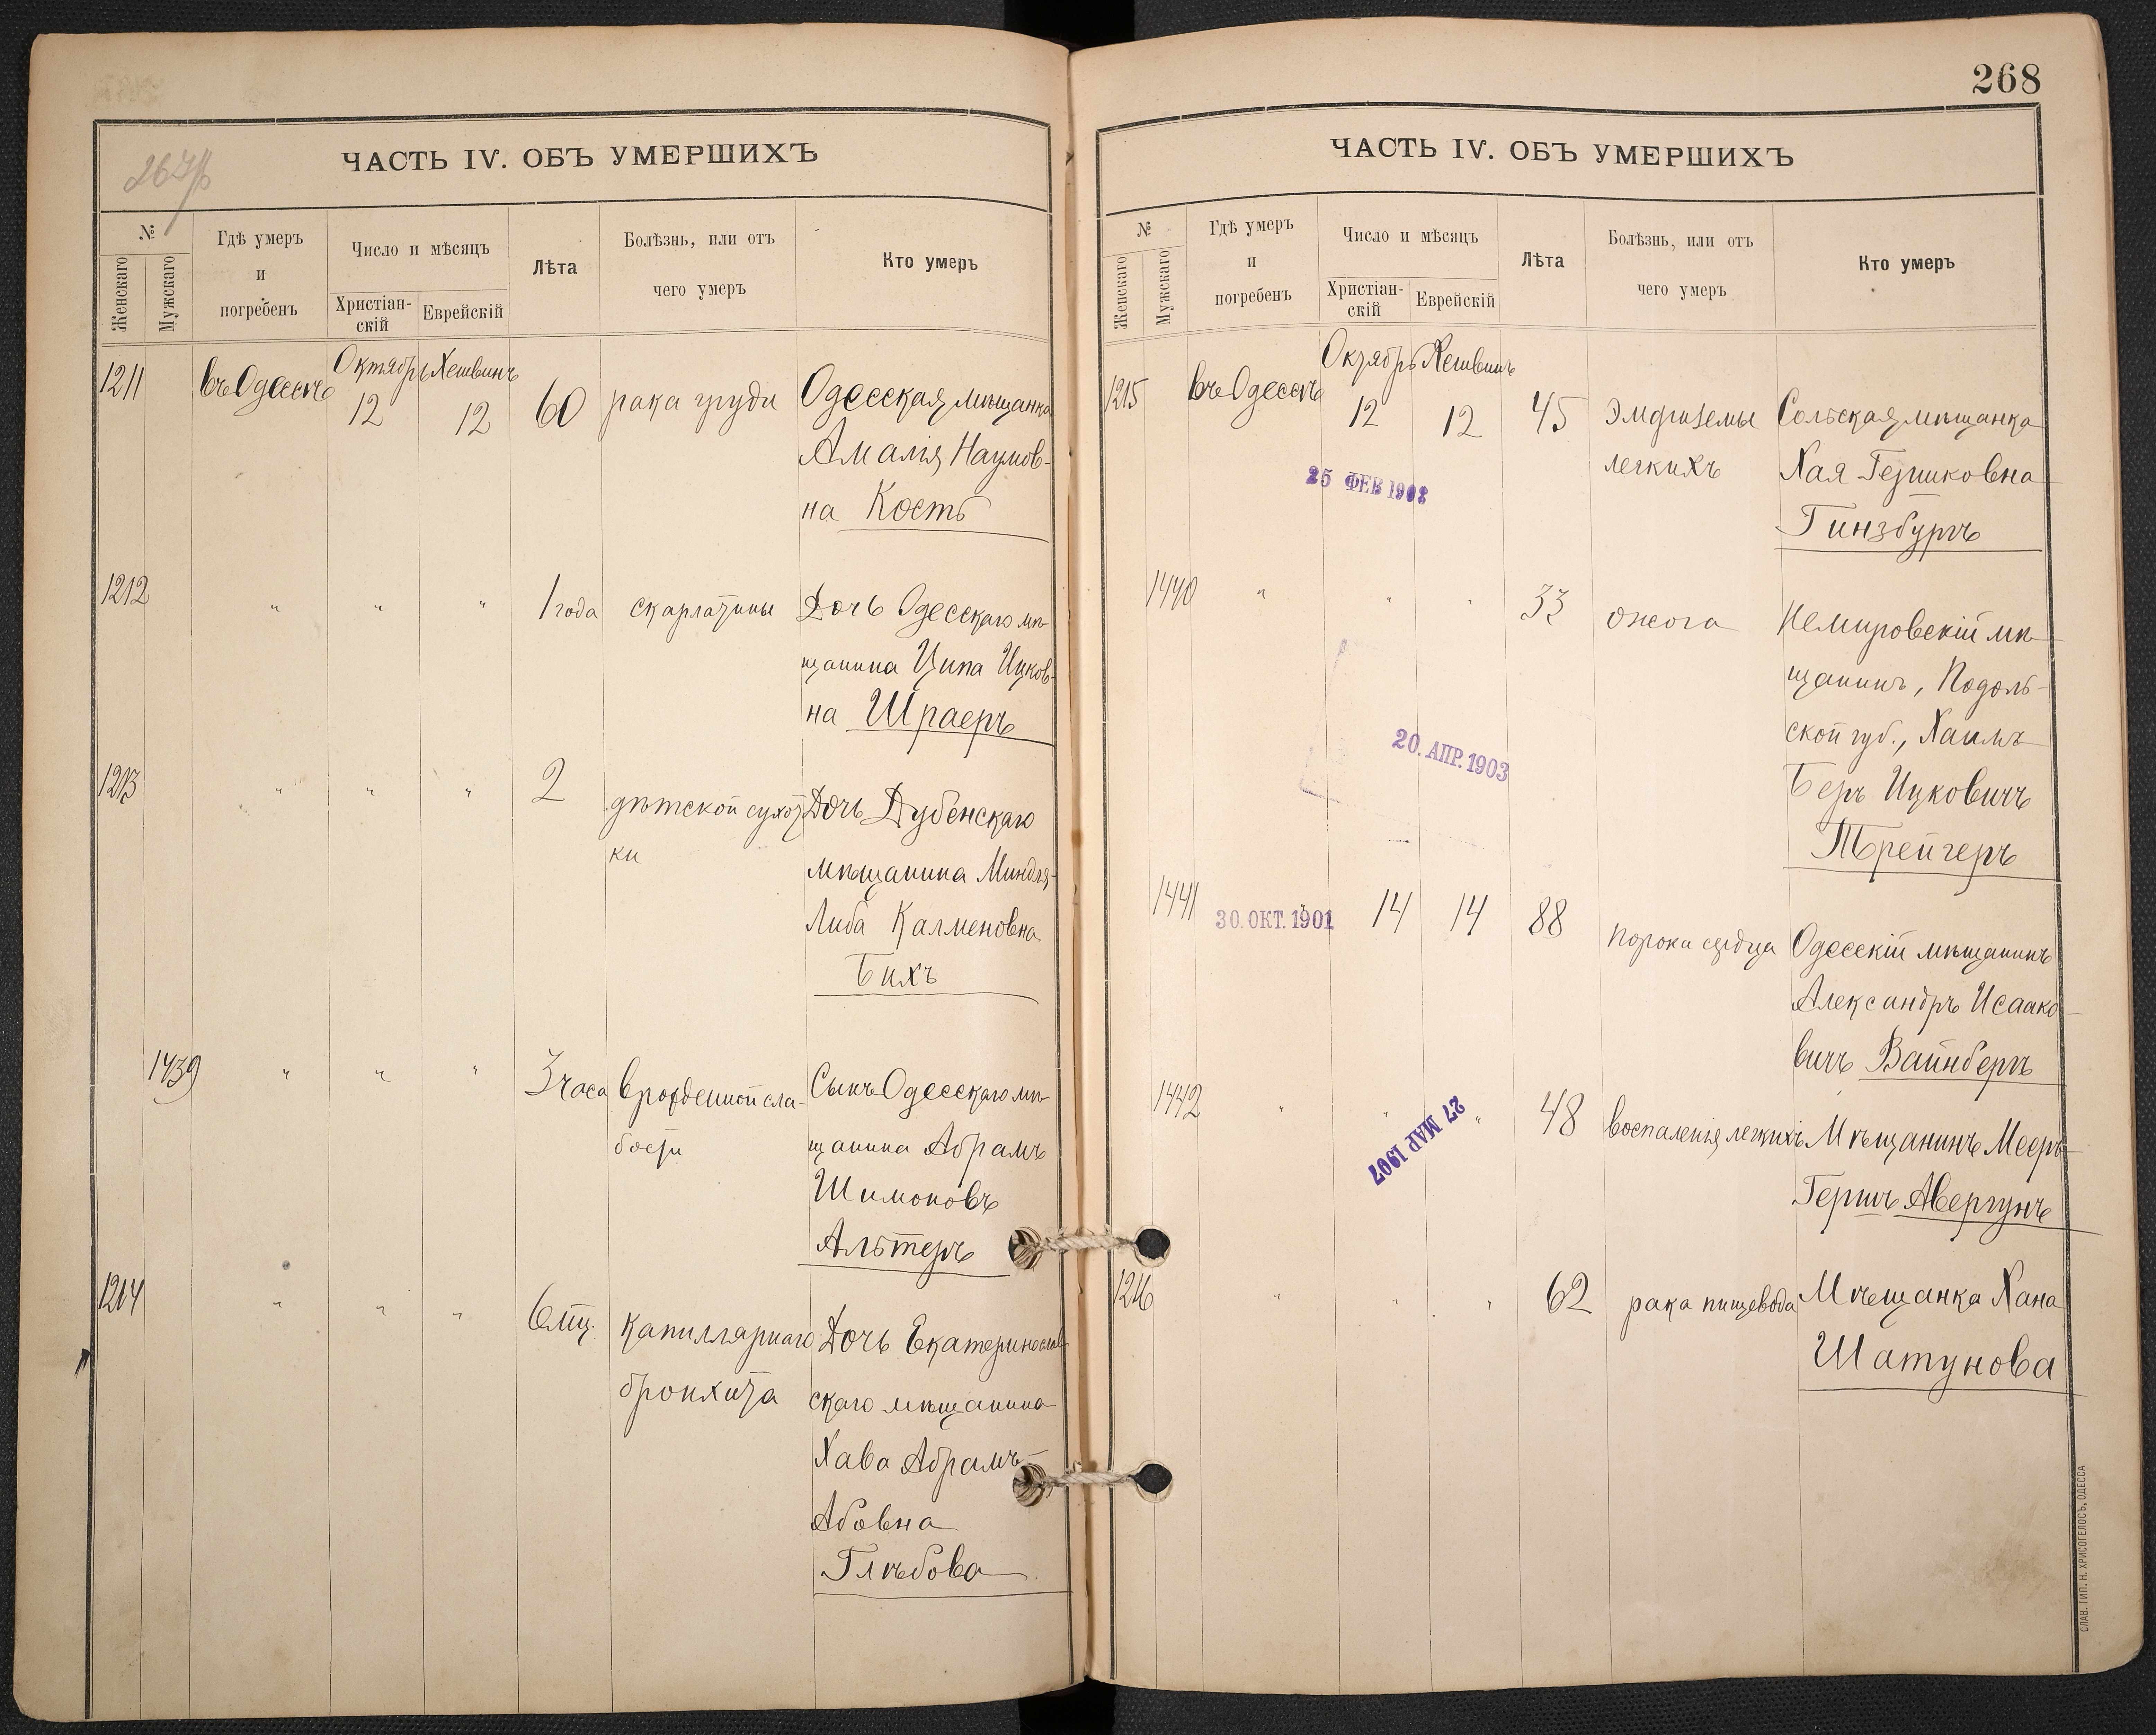 268
ЧАСТЬ IV. ОБЪ УМЕРШИХЪ
№
Женскаго
Мужскаго
Гдѣ умеръ
и
погребенъ
Число и мѣсяцъ
Христіан-
скій
Еврейскій
Лѣта
Болѣзнь, или отъ
чего умеръ
Кто умеръ
Октябрь Хешвинъ
1211 въ Одессѣ 12 12 60 рака груди Одесская мѣщанка
Амалія Наумов-
на Кость
1212 " " " 1 года скарлатины Дочь Одесскаго мѣ-
щанина Ципа Ицков-
на Шраеръ
1213 " " " 2 дѣтской сухот- Дочь Дубенскаго
ки
мѣщанина Миндля-
Либа Калменовна
Бихъ
1439 " " " 3 часа врожденной сла- Сынъ Одесскаго мѣ-
бости щанина Абрамъ
Шимоновъ
Альтеръ
1214 " " " 6 мц. капиллярнаго Дочь Екатеринослав-
бронхита скаго мѣщанина
Хава Абрамъ-
Абовна
Глѣбова
ЧАСТЬ IV. ОБЪ УМЕРШИХЪ
№
Женскаго
Мужскаго
Гдѣ умеръ
и
погребенъ
Число и мѣсяцъ
Христіан-
скій
Еврейскій
Лѣта
Болѣзнь, или отъ
чего умеръ
Кто умеръ
Октябрь Хешвинъ
1215 въ Одессѣ 12 12 45 Эмфиземы Сольская мѣщанка
легкихъ Хая Гершковна
25 ФЕВ 1902
Гинзбургъ
1440 " " " 33 ожога Немировскій мѣ-
щанинъ, Подоль-
ской губ., Хаимъ
20. АПР. 1903
Беръ Ицковичъ
Трейгеръ
1441 30. ОКТ. 1901 14 14 88 порока сердца Одесскій мѣщанинъ
Александръ Исаако-
вичъ Вайнбергъ
1442 " " " 48 воспаленія легкихъ Мѣщанинъ Мееръ-
27 МАР 1907
Гершъ Авергунъ
1216 " " " 62 рака пищевода Мѣщанка Хана
Шатунова
СЛАВ. ТИП. Н. ХРИСОГЕЛОСЪ, ОДЕССА